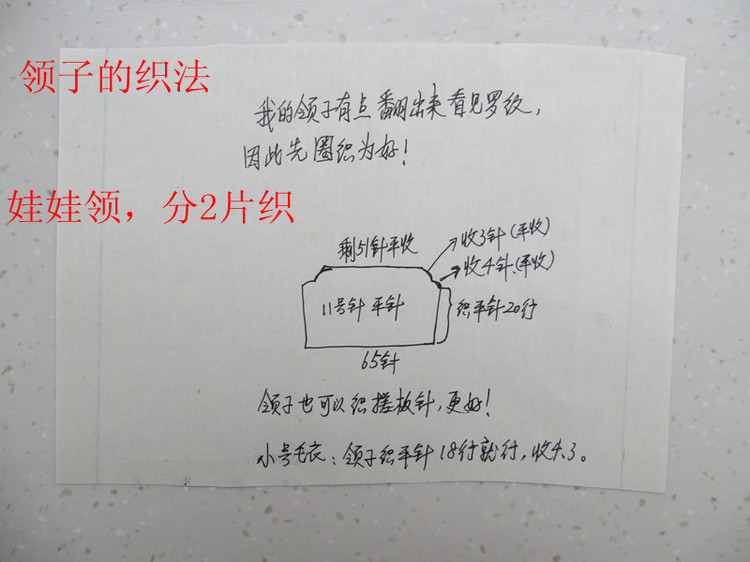 领子的织法
我的领子有点翻出来看见罗纹，
因此先圈织为好！
娃娃领，分2片织
剩51针平收
收3针(平收)
收4针(平收)
11号针 平针
织平针20行
65针
领子也可以织搓板针，更好！
小号毛衣：领子织平针18行就行，收4.3。